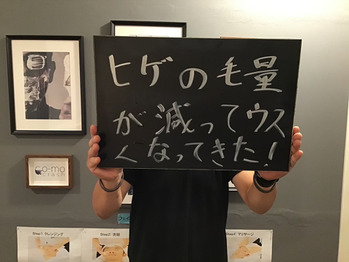 ヒゲの毛量
が減ってウス
くなってきた!
co-mo
Step1 クレンジング
Step2
Step3 マッサージ